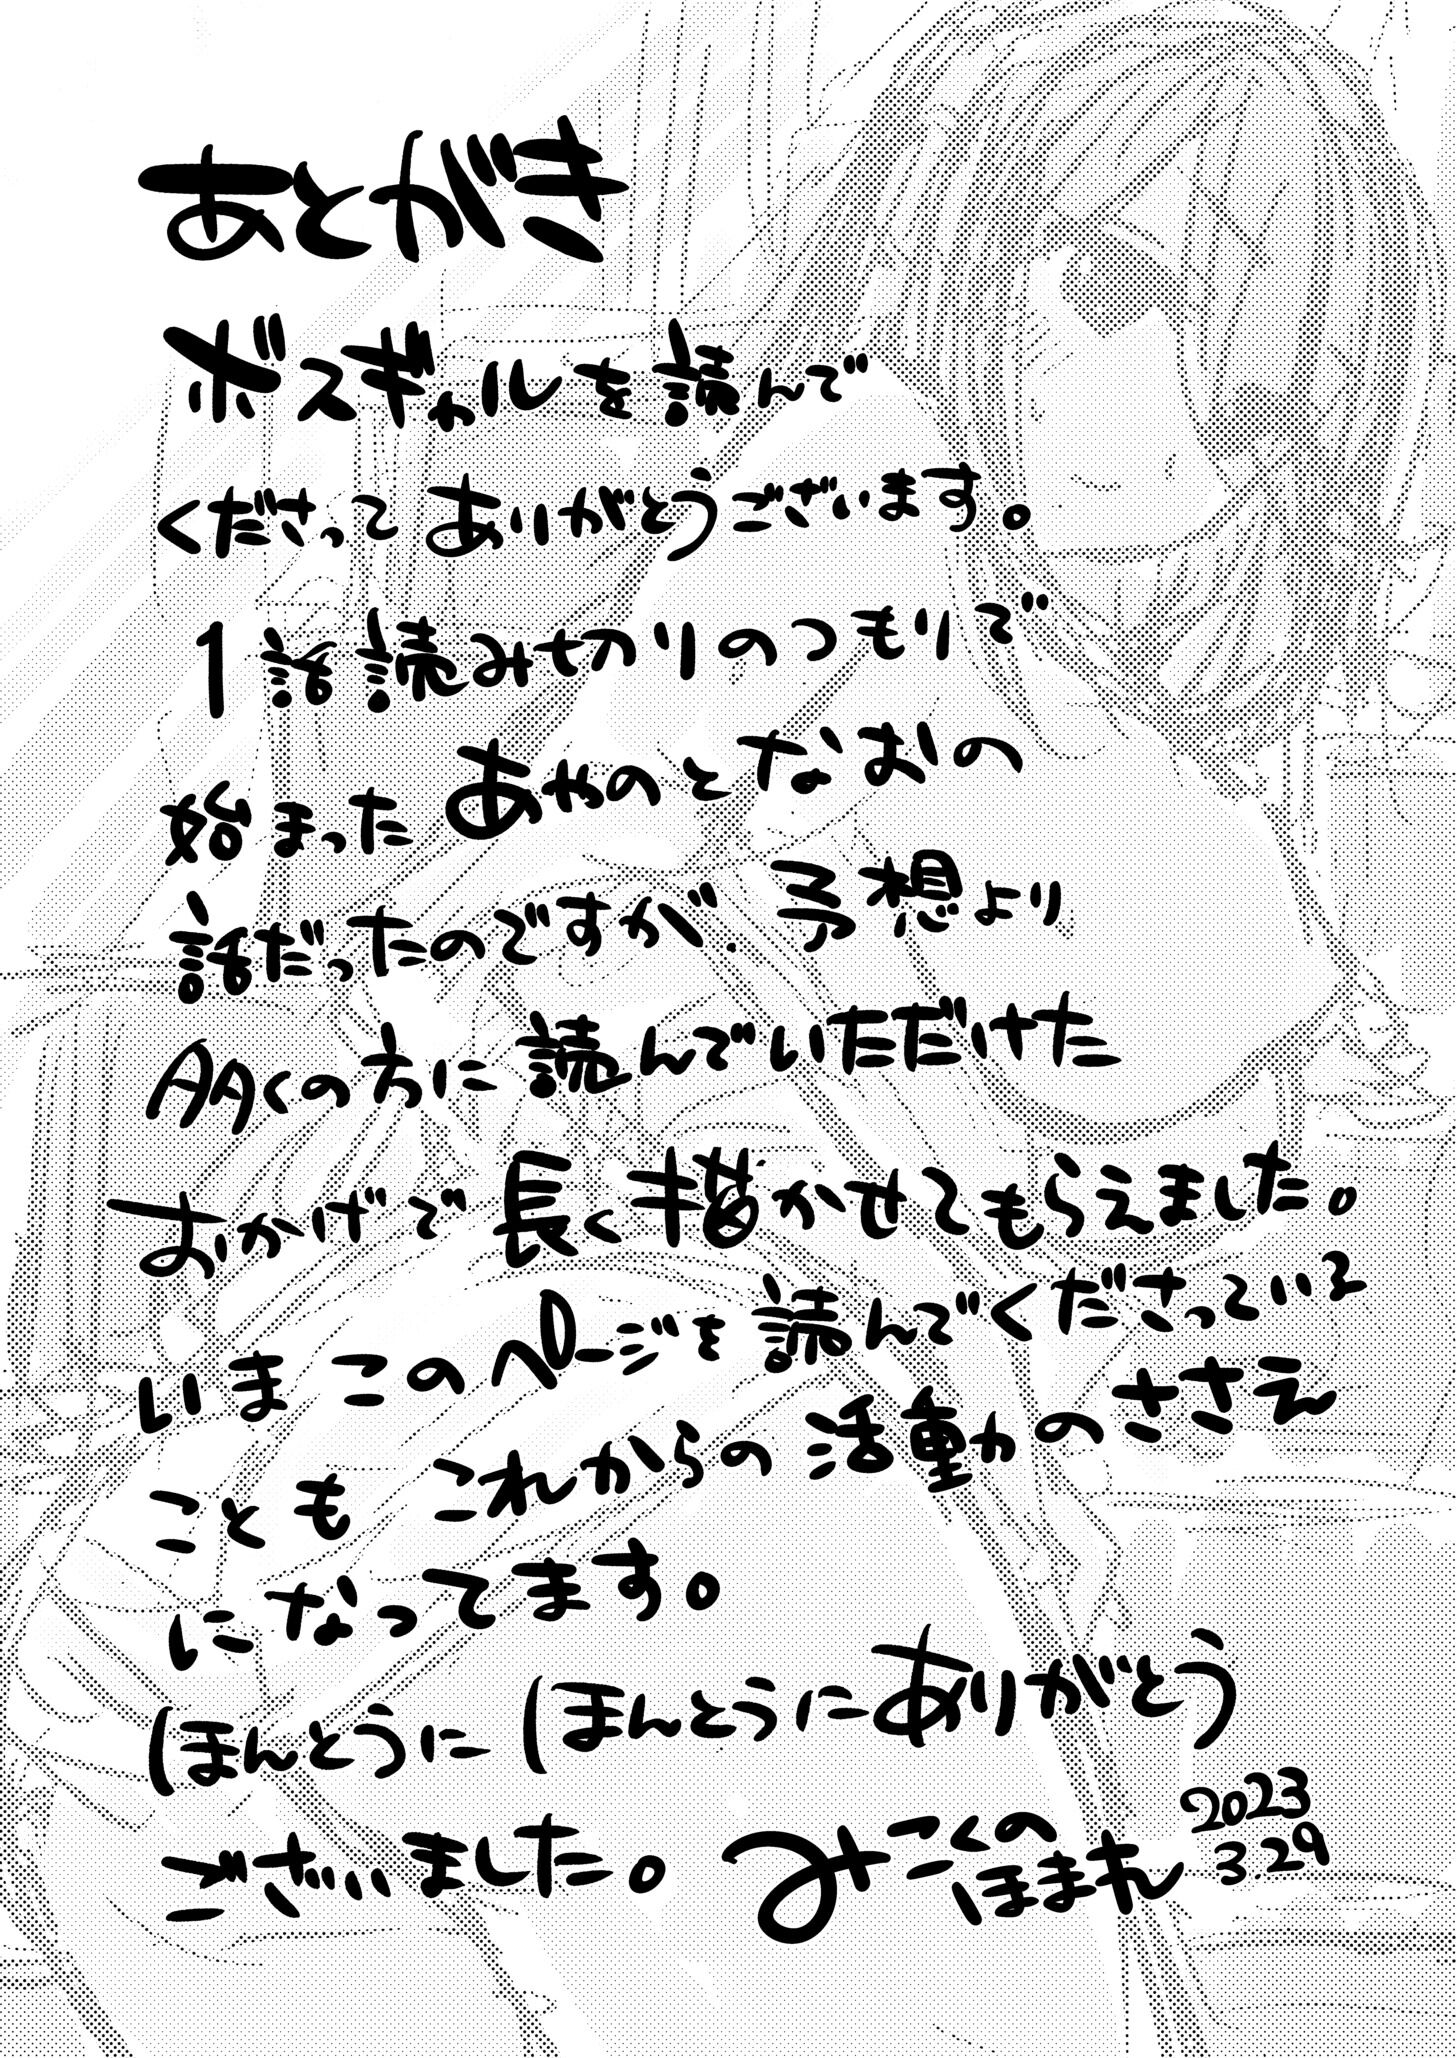 あとがき
ボスギャルを読んで
くださってありがとうございます。
1話読み切りのつもりで
始まったあやのとなおの
話だったのですが、予想より
多くの方に読んでいただけた
おかげで長く描かせてもらえました。
いまこのページを読んでくださっている
こともこれからの活動のささえ
になってます。
ほんとうにほんとうにありがとう
ございました。
みこくの
ほまれ
2023
3.29